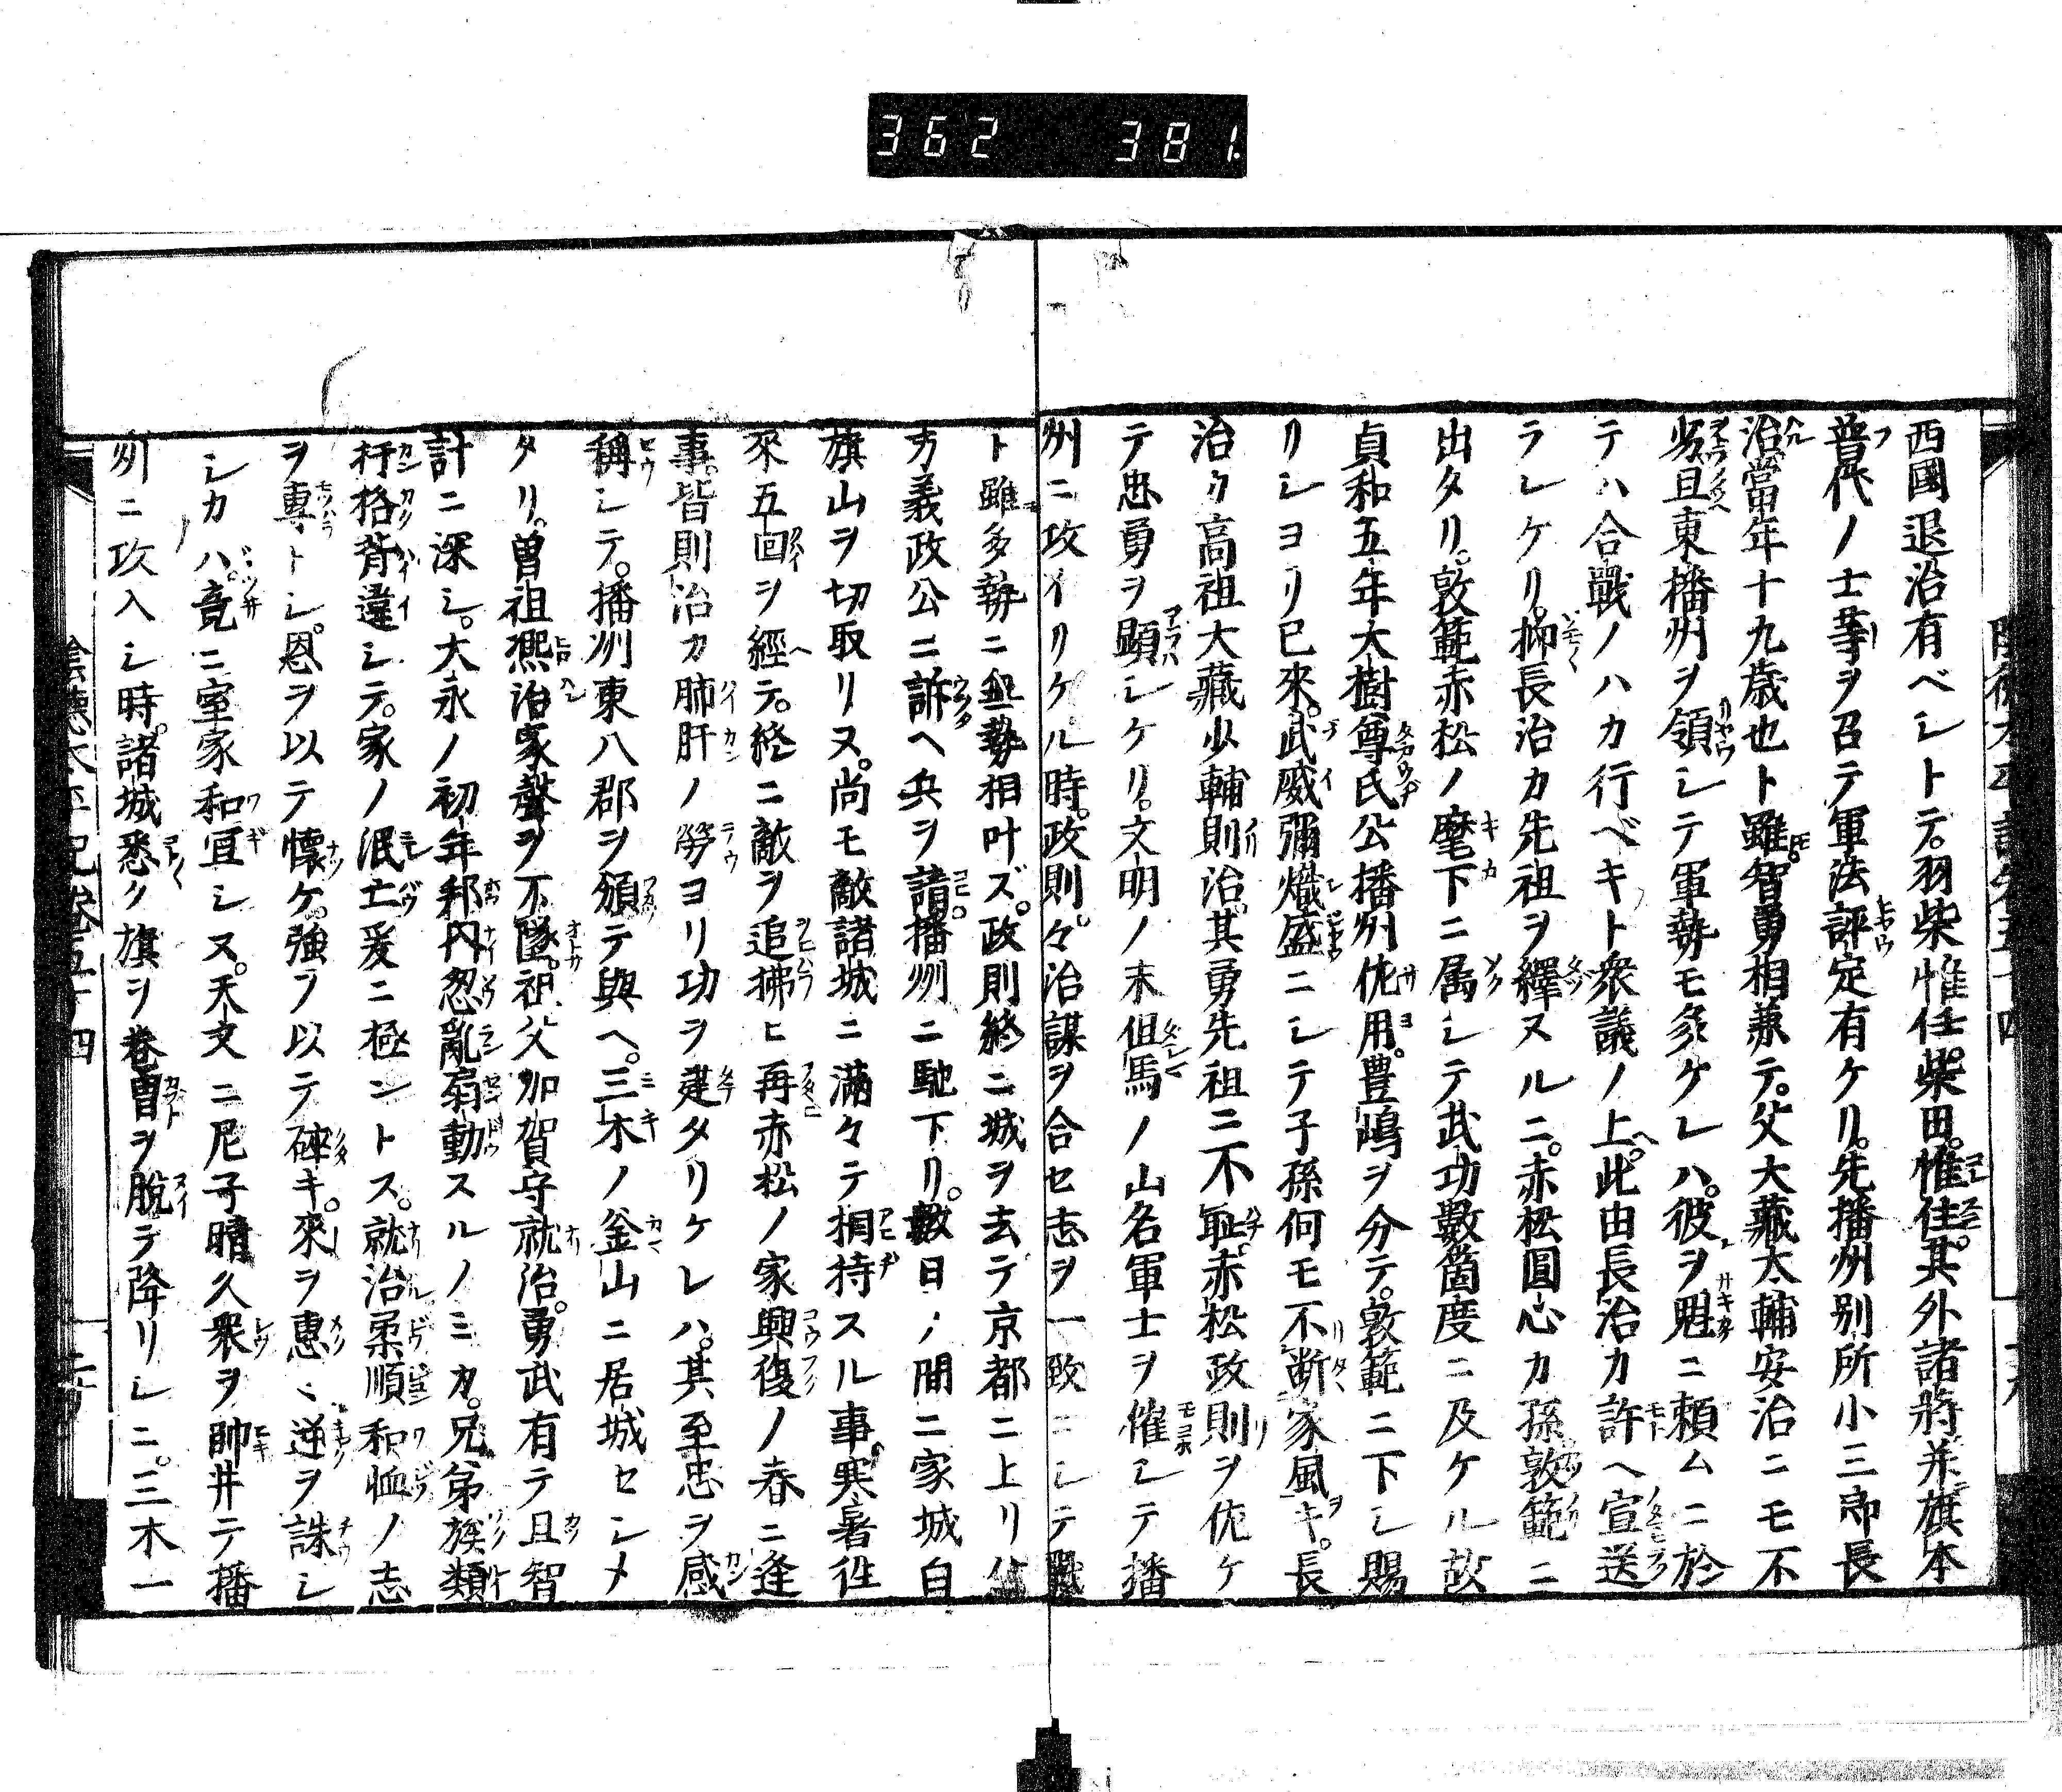 362 381.
西國退治有ベシトテ。羽柴惟任。柴田。惟住。其外諸將并旗本
普代ノ士等ヲ召テ軍法評定有ケリ。先播州別所小三郎長
治當年十九歳也ト雖智勇相兼テ。父大藏太輔安治ニモ不
劣且東播州ヲ領シテ軍勢モ多ケレハ。彼ヲ魁ニ頼ムニ於
テハ合戰ノハカ行ベキト衆議ノ上。此由長治カ許ヘ宣送
ラレケリ。抑長治カ先祖ヲ繹ヌルニ。赤松圓心カ孫敦範ニ
出タリ。敦範赤松ノ麾下ニ属シテ武功數箇度ニ及ケル故
貞和五年大樹尊氏公播州佐用。豊嶋ヲ分テ。敦範ニ下シ賜
リシヨリ已來。武威彌熾盛ニシテ子孫何モ不斷家風キ。長
治カ高祖大藏少輔則治。其勇先祖ニ不恥。赤松政則ヲ佐ケ
テ忠勇ヲ顯シケリ。文明ノ末但馬ノ山名軍士ヲ催シテ播
州ニ攻イリケル時。政則々治謀ヲ合セ志ヲ一致ニシテ戰
ト雖多勢ニ無勢相叶ズ。政則終ニ城ヲ去テ京都ニ上リ
方義政公ニ訴ヘ兵ヲ請。播州ニ馳下リ。數日ノ間ニ家城白
旗山ヲ切取リヌ。尚モ敵諸城ニ滿々テ相持スル事寒暑徃
來五回ヲ經テ。終ニ敵ヲ追拂ヒ再赤松ノ家興復ノ春ニ逢
事。皆則治カ肺肝ノ勞ヨリ功ヲ建タリケレハ。其至忠ヲ感
稱シテ。播州東八郡ヲ頒テ與ヘ。三木ノ釜山ニ居城セシメ
タリ。曽祖凞治家聲ヲ不墜。祖父加賀守就治。勇武有テ且智
計ニ深シ。大永ノ初年邦内忽亂扇動スルノミカ。兄弟族類
扞格背違シテ。家ノ泯亡爰ニ極ントス。就治柔順和恤ノ志
ヲ專トシ。恩ヲ以テ懷ケ。強ヲ以テ碎キ。來ヲ惠ミ逆ヲ誅シ
シカハ。竟ニ室家和宜シヌ。天文ニ尼子晴久衆ヲ帥井テ播
州ニ攻入シ時。諸城悉ク旗ヲ卷冑ヲ脱テ降リシニ。三木一